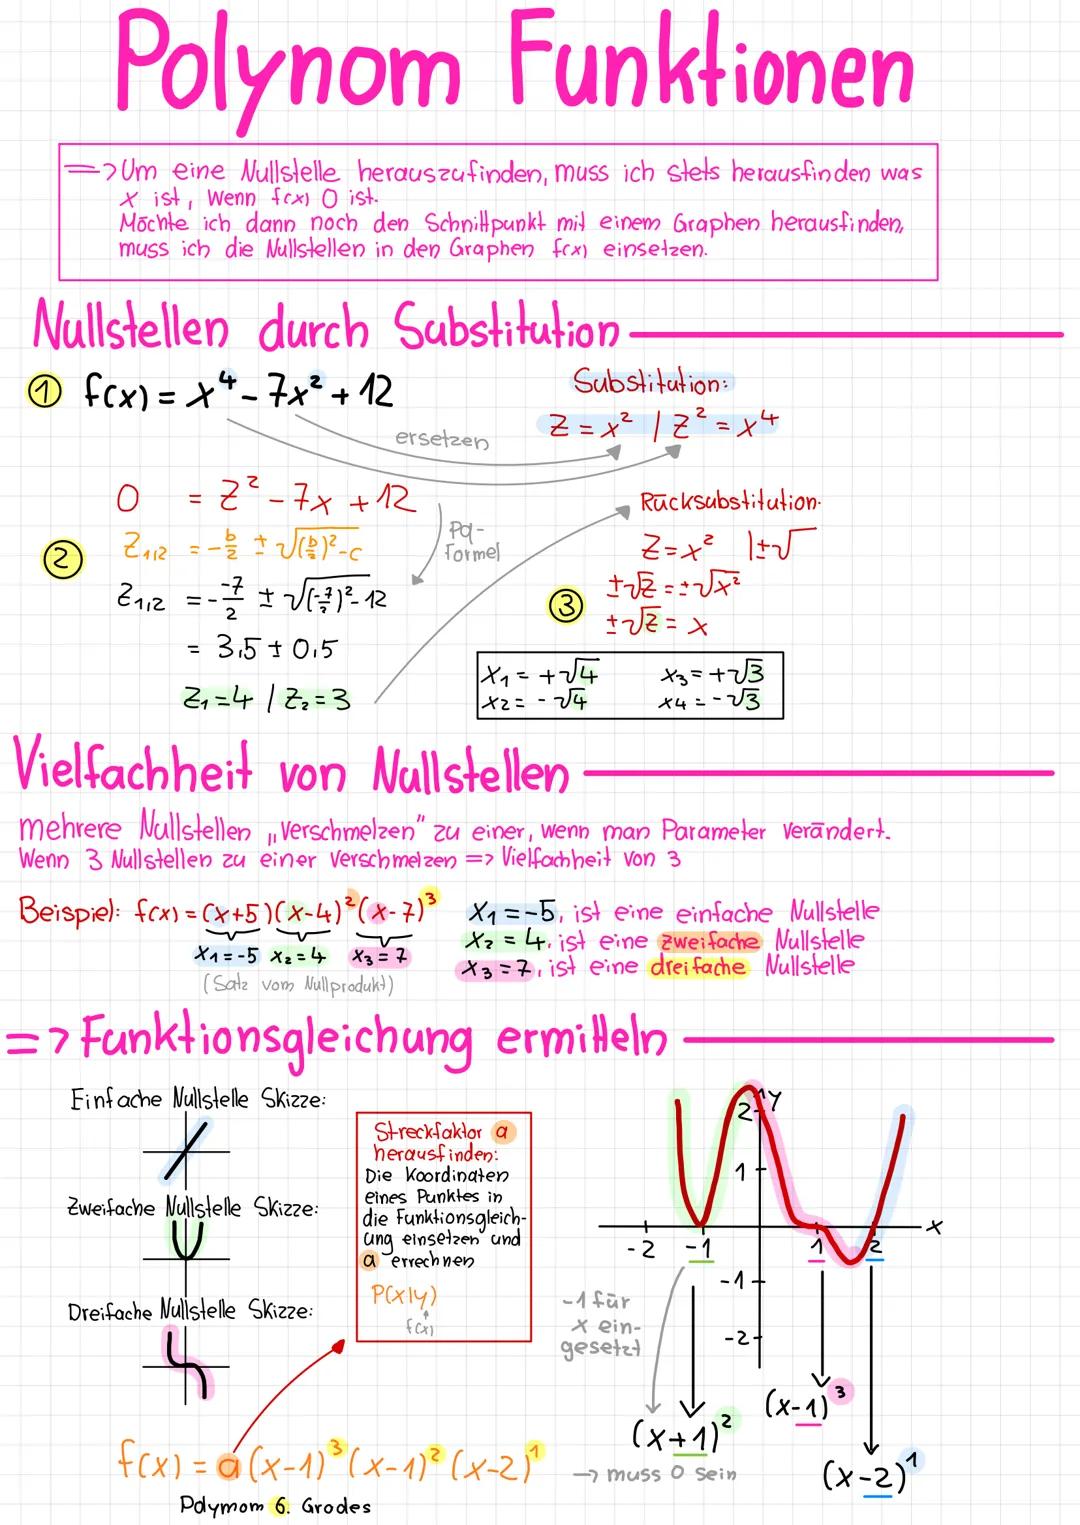 Polynom Funktionen
=> Um eine Nullstelle herauszufinden, muss ich stets herausfinden was
x ist, wenn f(x) 0 ist.
Möchte ich dann noch den Schnittpunkt mit einem Graphen herausfinden,
muss ich die Nullstellen in den Graphen f(x) einsetzen.
Nullstellen durch Substitution
① f(x) = x⁴ - 7x² + 12
ersetzen
Substitution:
z = x² / z² = x⁴
0 = z² - 7x + 12
② z₁,₂ = -b/2 ± √(b/2)² - c
Pq-
Formel
z₁,₂ = - -7/2 ± √(-7/2)² - 12
= 3,5 ± 0,5
z₁ = 4 / z₂ = 3
Rücksubstitution:
z = x² |±√
③ ±√z = ±√x²
±√z = x
x₁ = +√4 x₃ = +√3
x₂ = -√4 x₄ = -√3
Vielfachheit von Nullstellen
mehrere Nullstellen „verschmelzen" zu einer, wenn man Parameter verändert.
Wenn 3 Nullstellen zu einer verschmelzen => Vielfachheit von 3
Beispiel: f(x) = (x+5)(x-4)²(x-7)³
x₁ = -5 x₂ = 4 x₃ = 7
(Satz vom Nullprodukt)
x₁ = -5, ist eine einfache Nullstelle
x₂ = 4, ist eine zweifache Nullstelle
x₃ = 7, ist eine dreifache Nullstelle
=> Funktionsgleichung ermitteln
Einfache Nullstelle Skizze:
Zweifache Nullstelle Skizze:
Dreifache Nullstelle Skizze:
Streckfaktor a
herausfinden:
Die Koordinaten
eines Punktes in
die Funktionsgleich-
ung einsetzen und
a errechnen
P(x|y)
f(x)
y
2
1
x
-2 -1 1 2
-1
-2
-1 für
x ein-
gesetzt
(x-1)³
(x+1)²
-> muss 0 sein
(x-2)¹
f(x) = a (x-1)³ (x-1)² (x-2)¹
Polymom 6. Grades